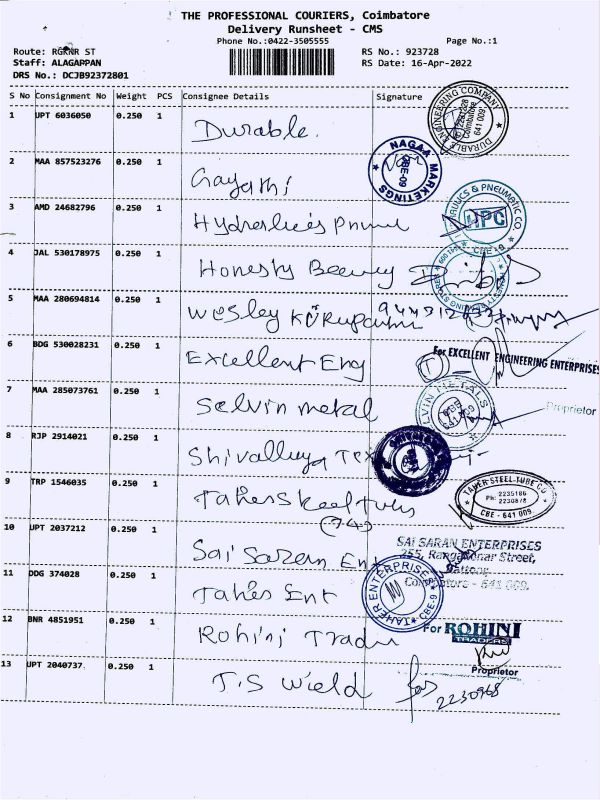 THE PROFESSIONAL COURIERS, Coimbatore
Delivery Runsheet - CMS
Phone No.:0422-3505555
Page No.:1
Route: RGKNR ST
RS No.: 923728
Staff: ALAGAPPAN
RS Date: 16-Apr-2022
DRS No.: DCJB92372801
S No Consignment No Weight PCS Consignee Details Signature
1 UPT 6036050 0.250 1 Durable.
DURABLE ENGINEERING COMPANY Coimbatore 641 009.
2 MAA 857523276 0.250 1 Gayathi
NAGAA MARKETINGS CBE-09
3 AMD 24682796 0.250 1 Hydraulics
& PNEUMATIC CO. HPC CBE-9
4 JAL 530178975 0.250 1 Honesty
5 MAA 280694814 0.250 1 Wesley
6 BDG 530028231 0.250 1 Excellent Eng
For EXCELLENT ENGINEERING ENTERPRISES
7 MAA 285073761 0.250 1 Selvin metal
Proprietor
8 RJP 2914021 0.250 1 Shivalluya Tex
9 TRP 1546035 0.250 1 Tahers
TAHER STEEL-TUBE CO
Ph: 2235186
2230878
CBE - 641 009.
10 UPT 2037212 0.250 1 Sai Saran Ent
SAI SARAN ENTERPRISES
255, Rangakonar Street,
Kattoor,
Coimbatore - 641 009.
11 DDG 374028 0.250 1 Taher Ent
TAHER ENTERPRISE CBE-9
12 BNR 4851951 0.250 1 Rohini Trader
For ROHINI
TRADERS
Proprietor
13 UPT 2040737 0.250 1 T.S Wield for
2230968